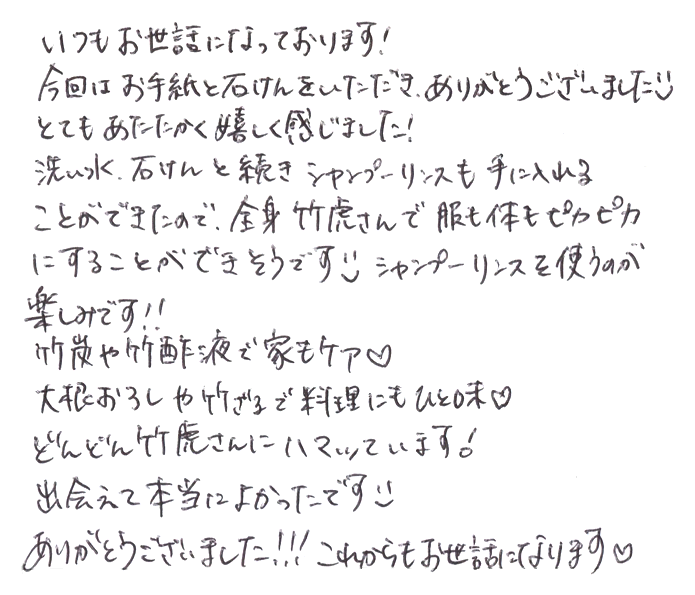 いつもお世話になっております!
今回はお手紙と石けんをいただき、ありがとうございました☺
とてもあたたかく嬉しく感じました!
洗い水、石けんと続きシャンプーリンスも手に入れる
ことができたので、全身竹虎さんで服も体もピカピカ
にすることができそうです☺シャンプーリンスを使うのが
楽しみです!!
竹炭や竹酢液で家もケア♡
大根おろしや竹ざるで料理にもひと味♡
どんどん竹虎さんにハマっています!
出会えて本当によかったです☺
ありがとうございました!!!これからもお世話になります♡